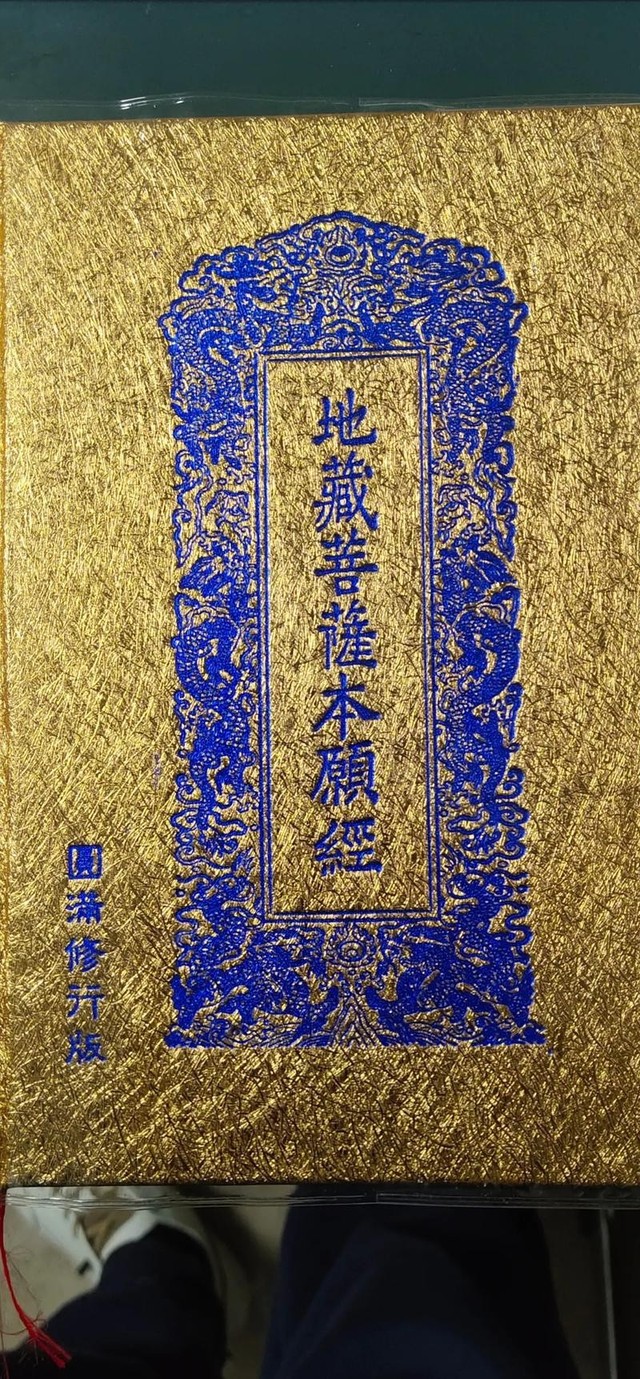 地藏菩薩本願經
圓滿修行版